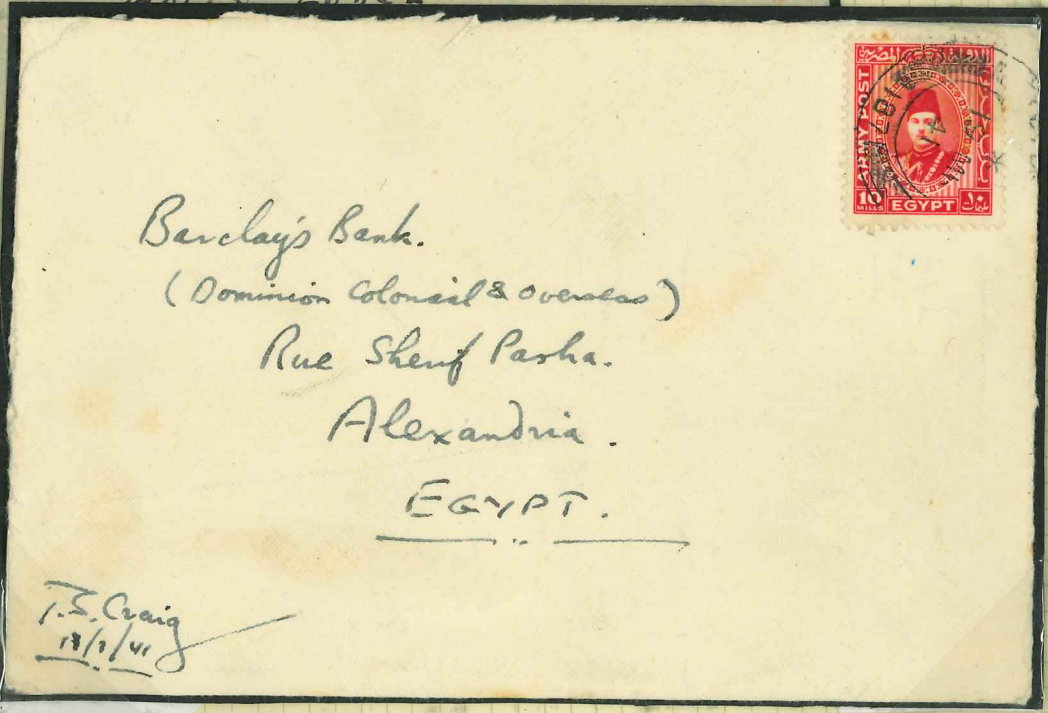 ARMY POST
10
MILLS
EGYPT
41
Barclay's Bank.
(Dominion Colonial & Overseas)
Rue Sherif Pasha.
Alexandria.
EGYPT.
T.S. Craig